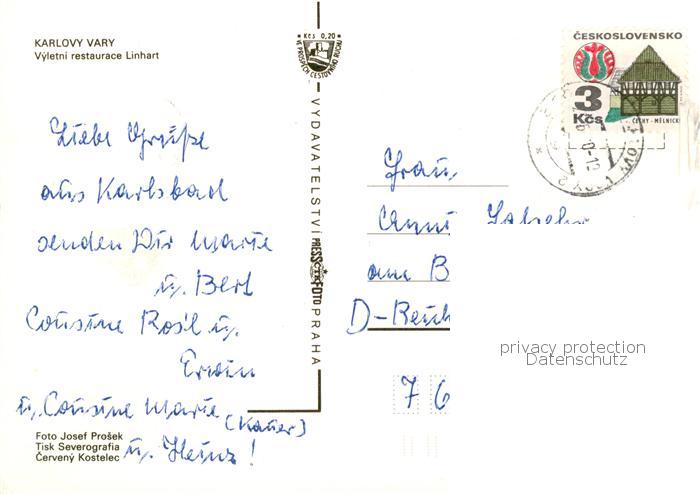 KARLOVY VARY
Výletní restaurace Linhart
Kčs 0,20
VE PROSPĚCH CESTOVNÍHO RUCHU
ČESKOSLOVENSKO
3
Kčs
ČECHY - MĚLNICKO
Liebe Grüße
aus Karlsbad
senden Dir Marie
u. Berl
Cousine Rosl u.
Erwin
u. Cousine Marie
(Kauer)
u. Heinz!
VYDAVATELSTVÍ PRESSFOTO PRAHA
Frau
Anni
am B
D-
7 6
privacy protection
Datenschutz
Foto Josef Prošek
Tisk Severografia
Červený Kostelec